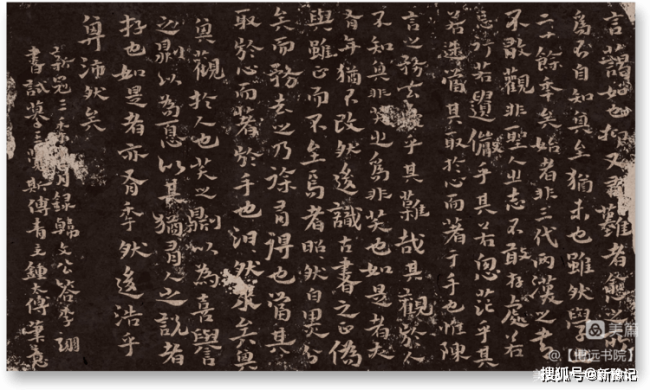 言藹如也抑又有難者愈之所
為不自知其至猶未也雖然學
二十餘年矣始者非三代兩漢之書
不敢觀非聖人之志不敢存處若
忘行若遺儼乎其若思茫乎其
若迷當其取於心而著于手也惟陳
言之務去乎其難哉其觀於人
不知其非之為非笑也如是者亦
有年猶不改然後識古書之正偽
與雖正而不至焉者昭然白黑分
矣而務去之乃徐有得也當其
取於心而著於手也汩然來矣其
觀於人也笑之則以為喜譽
之則以為憂以其猶有人之說者
存也如是者亦有年然後浩乎
其沛然矣
三年月錄韓文公答李翊
書試傳青主鍾太傅筆意
美篇
搜狐号@新豫记